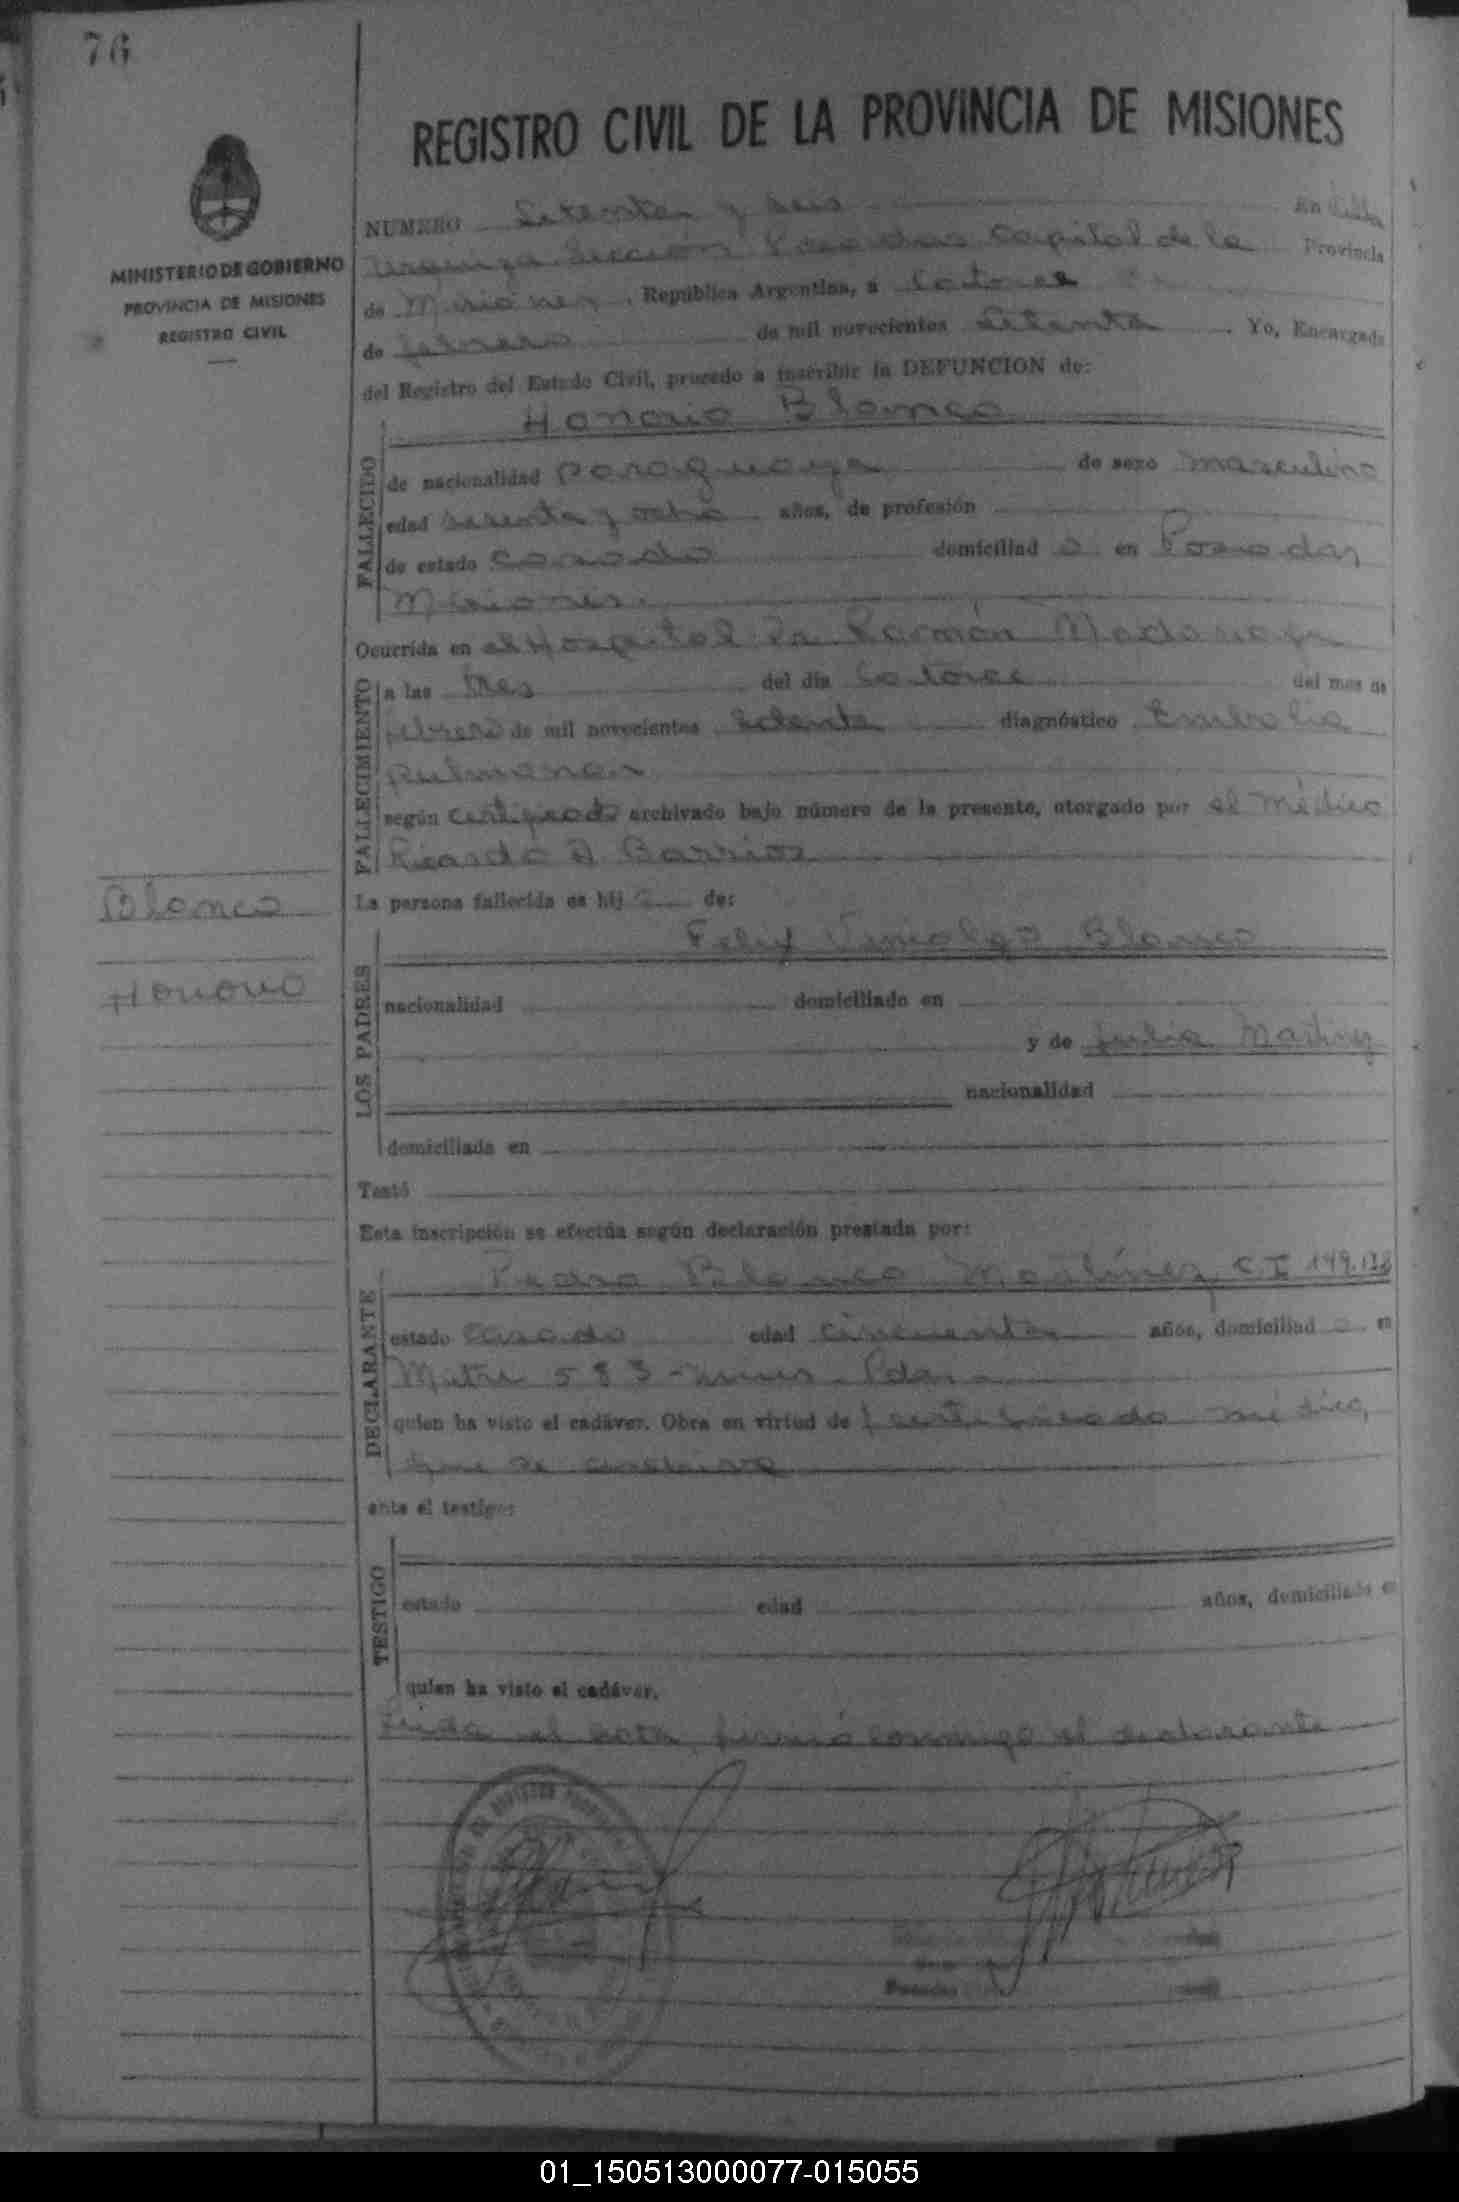 76
REGISTRO CIVIL DE LA PROVINCIA DE MISIONES
MINISTERIO DE GOBIERNO
PROVINCIA DE MISIONES
REGISTRO CIVIL
NUMERO Setenta y seis En Villa
Urquiza Sección Posadas Capital de la Provincia
de Misiones, República Argentina, a Catorce
de febrero de mil novecientos Setenta. Yo, Encargado
del Registro del Estado Civil, procedo a inscribir la DEFUNCION de:
Honorio Blanco
FALLECIDO
de nacionalidad paraguaya de sexo masculino
edad sesenta y ocho años, de profesión
de estado Casado domiciliad o en Posadas
Misiones.
Ocurrida en el Hospital Dr Ramón Madariaga
FALLECIMIENTO
a las tres del día Catorce del mes de
febrero de mil novecientos setenta diagnóstico Embolia
pulmonar
según certificado archivado bajo número de la presente, otorgado por el médico
Ricardo A. Barrios
Blanco
Honorio
La persona fallecida es hij o de:
LOS PADRES
Felix Blanco
nacionalidad domiciliado en
y de Julia Martinez
nacionalidad
domiciliada en
Testó
Esta inscripción se efectúa según declaración prestada por:
DECLARANTE
Pedro Blanco Martínez, C.I 149.128
estado Casado edad cincuenta años, domiciliad o en
Mitre 583 - Pdas.
quien ha visto el cadáver. Obra en virtud de certificado médico,
que se archiva
ante el testigo:
TESTIGO
estado edad años, domiciliado en
quien ha visto el cadáver.
Leida el acta, firmó conmigo el declarante
Posadas
01_150513000077-015055